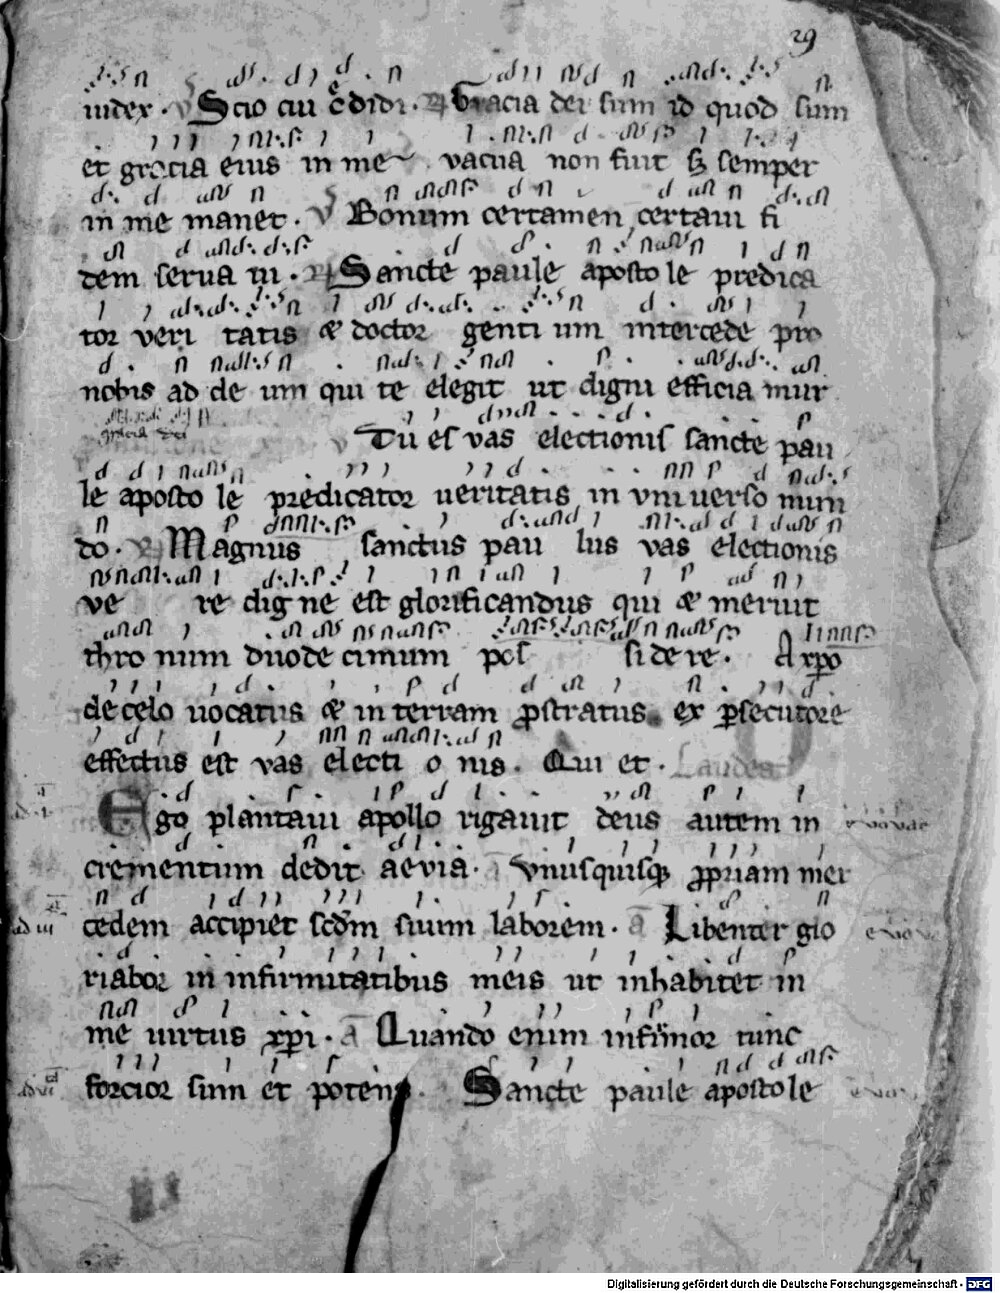 29
iudex. V Scio cui c̄didi. R Gracia dei sum id quod sum
et gracia eius in me vacua non fuit sꝫ semper
in me manet. V Bonum certamen certaui fi
dem serua ui. R Sancte paule aposto le predica
tor veri tatis & doctor genti um intercede pro
nobis ad de um qui te elegit ut digni efficia mur
gracia dei V Tu es vas electionis sancte pau
le aposto le predicator ueritatis in vni uerso mun
do. R Magnus sanctus pau lus vas electionis
ve re dig ne est glorificandus qui & meruit
thro num duode cimum pos si de re. A xp̄o
de celo uocatus & in terram ꝓstratus ex ꝑsecutore
effectus est vas electi o nis. Qui et. Laudes
Ego plantaui apollo rigauit deus autem in
crementum dedit aeuia. a Vnusquisqꝫ ꝓpriam mer
cedem accipiet scdm suum laborem. a Libenter glo
riabor in infirmitatibus meis ut inhabitet in
me uirtus xp̄i. a Quando enim infirmor tunc
forcior sum et potens. Sancte paule apostole
Digitalisierung gefördert durch die Deutsche Forschungsgemeinschaft - DFG